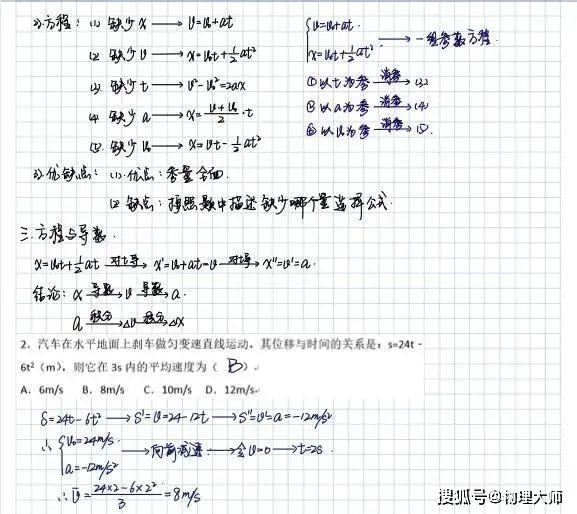 2)方程：(1) 缺少x ⟶ v=v₀+at
(2) 缺少v ⟶ x=v₀t+½at²
(3) 缺少t ⟶ v²-v₀²=2ax
(4) 缺少a ⟶ x=(v+v₀)/2·t
(5) 缺少v₀ ⟶ x=vt-½at²
{v=v₀+at.
x=v₀t+½at² ⟶ 一组参数方程.
①以t为参 消参⟶ (3)
②以a为参 消参⟶ (4)
③以v₀为参 消参⟶ (5).
3)优缺点：(1).优点：考量全面.
(2) 缺点：按照题中描述缺少哪个量选择公式.
三.方程与导数.
x=v₀t+½at 对t导⟶ x'=v₀+at=v 对t导⟶ x''=v'=a.
结论：x 导数⟶ v 导数⟶ a.
a 积分⟶ △v 积分⟶ △x
2．汽车在水平地面上刹车做匀变速直线运动，其位移与时间的关系是：s=24t﹣
6t²（m），则它在 3s 内的平均速度为（ B ）
A．6m/s B．8m/s C．10m/s D．12m/s
s=24t-6t² ⟶ s'=v=24-12t ⟶ s''=v'=a=-12m/s²
∴ {v₀=24m/s
a=-12m/s² ⟶ 向前减速 ⟶ 令v=0 ⟶ t=2s
∴ v̄=(24×2-6×2²)/3=8m/s
搜狐号@物理大师